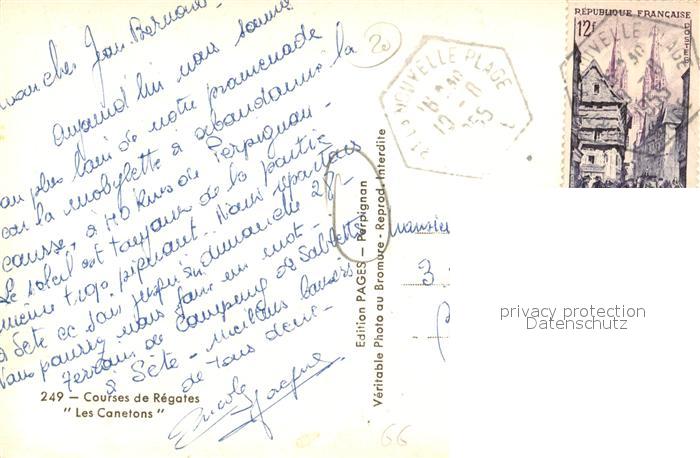 Jean Bernard -
Aujourd'hui nous sommes
au plus loin de notre promenade
car la mobylette a abandonné la
course, à 70 kms de Perpignan -
Le soleil est toujours de la partie
même trop piquant. Nous repartons
à Sète ce soir jusqu'au dimanche 28 -
Vous pouvez nous faire un mot -
Terrain de Camping des Sablettes
à Sète - Meilleurs baisers
de tous deux -
Nicole Jacques
249 — Courses de Régates
" Les Canetons "
20
Edition PAGES — Perpignan
Véritable Photo au Bromure - Reprod. Interdite
NOUVELLE PLAGE
1955
RÉPUBLIQUE FRANÇAISE
12F
POSTES
Monsieur
3
privacy protection
Datenschutz
66